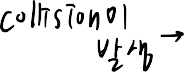 collision이
발생 →